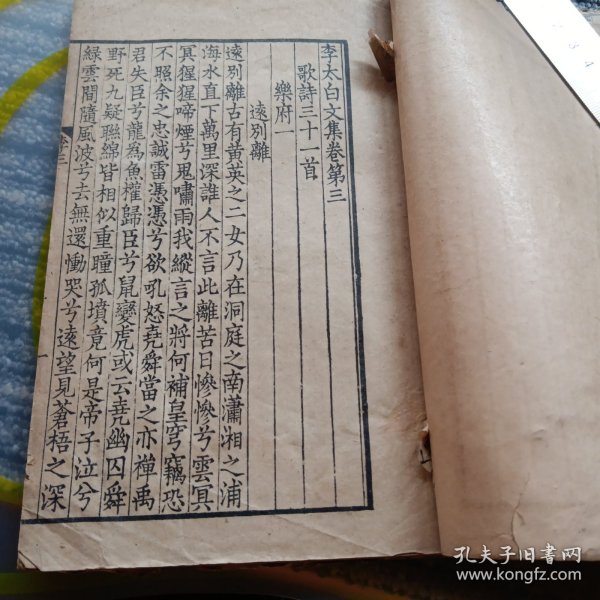 李太白文集卷第三
歌詩三十一首
樂府一
遠別離
遠別離古有黃英之二女乃在洞庭之南瀟湘之浦
海水直下萬里深誰人不言此離苦日慘慘兮雲冥
冥猩猩啼煙兮鬼嘯雨我縱言之將何補皇穹竊恐
不照余之忠誠雷憑憑兮欲吼怒堯舜當之亦禪禹
君失臣兮龍為魚權歸臣兮鼠變虎或云堯幽囚舜
野死九疑聯綿皆相似重瞳孤墳竟何是帝子泣兮
綠雲間隨風波兮去無還慟哭兮遠望見蒼梧之深
孔夫子旧書网
www.kongfz.com